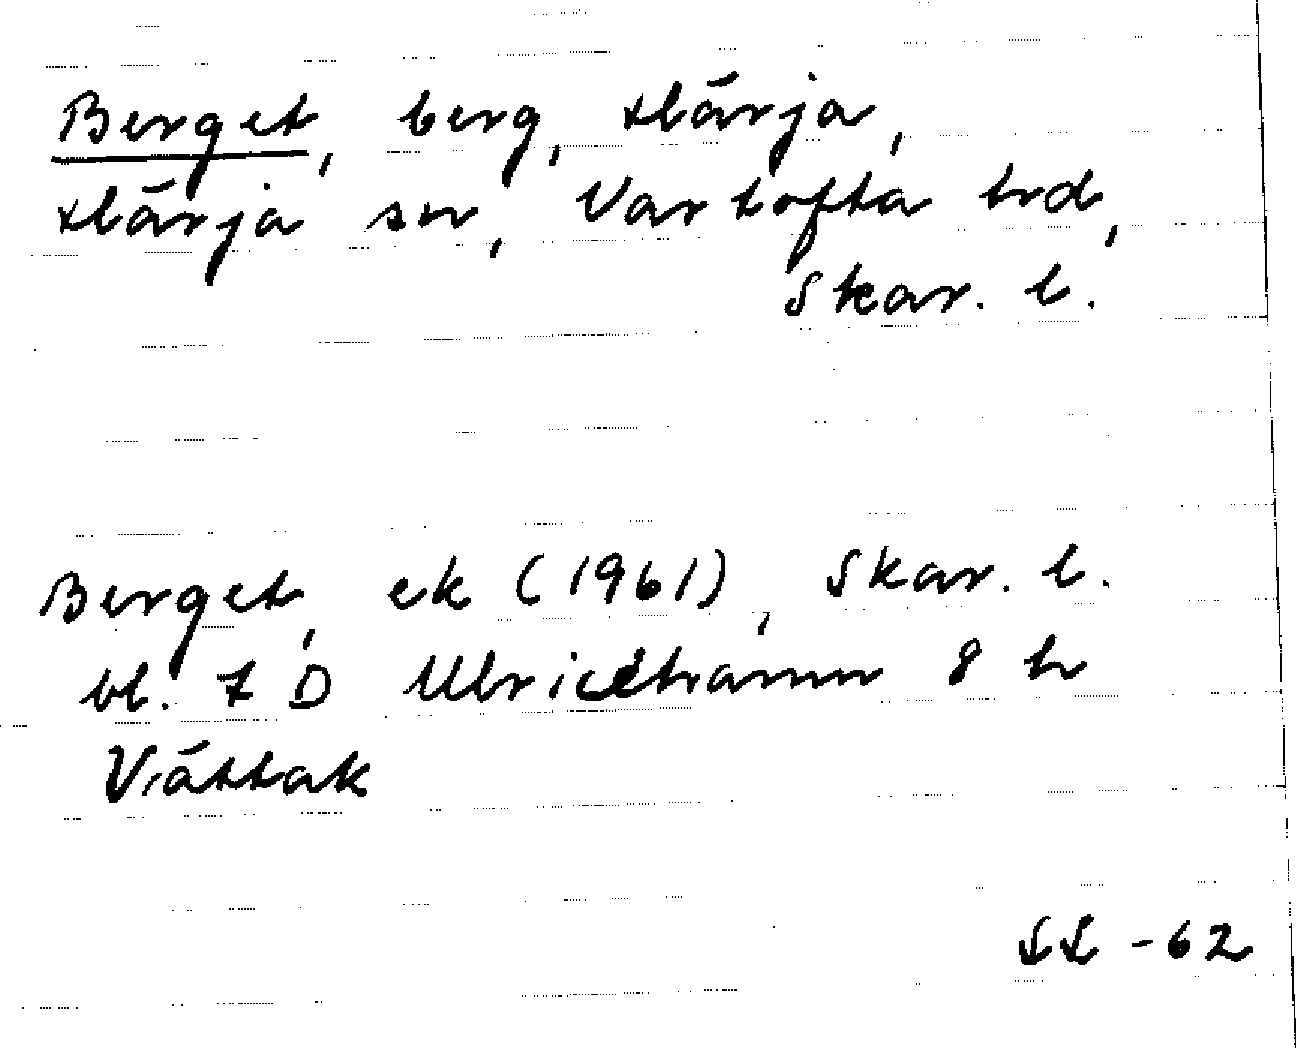 Berget, berg, Härja,
Härja sn, Vartofta hd,
Skar. l.
Berget, ek (1961), Skar. l.
bl. 7 D Ulricehamn 8 h
Vättak
SL -62